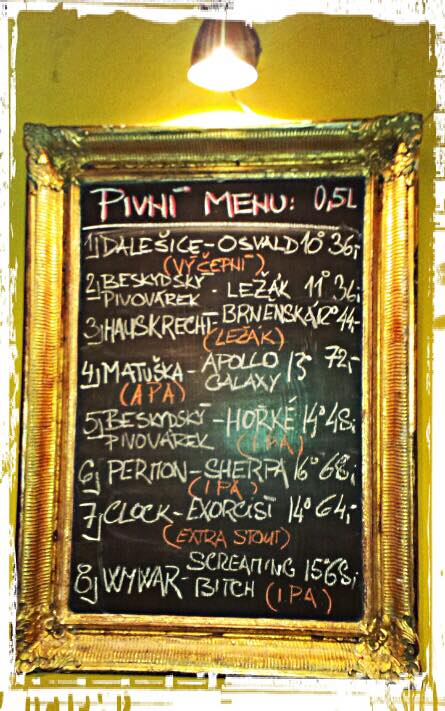 PIVNÍ MENU: 0,5L
1) DALEŠICE - OSVALD 10° 36,-
(VÝČEPNÍ)
2) BESKYDSKÝ PIVOVÁREK - LEŽÁK 11° 36,-
3) HAUSKRECHT - BRNENSKÁ 12° 44,-
(LEŽÁK)
4) MATUŠKA - APOLLO GALAXY 13° 72,-
(APA)
5) BESKYDSKÝ PIVOVÁREK - HOŘKÉ 14° 48,-
(IPA)
6) PERMON - SHERPA 16° 68,-
(IPA)
7) CLOCK - EXORCIST 14° 64,-
(EXTRA STOUT)
8) WYWAR - SCREAMING BITCH 15° 68,-
(IPA)